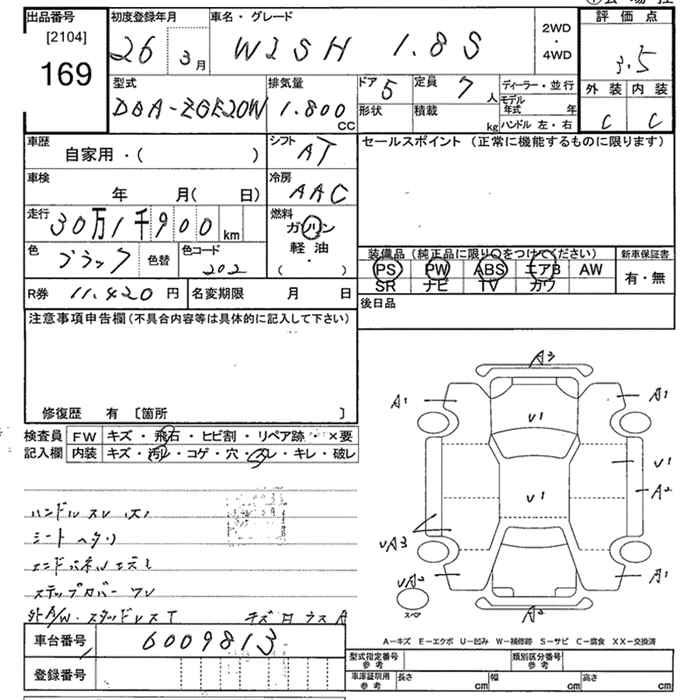 出品番号
[2104]
169
初度登録年月
26
3月
車名・グレード
WISH 1.8S
2WD
・
4WD
評価点
3.5
外装 内装
C C
型式
DBA-ZGE20W
排気量
1.800
CC
ドア
5
定員
7
人
形状
積載
kg
ディーラー・並行
モデル年式 年
ハンドル 左・右
車歴
自家用・( )
シフト
AT
セールスポイント (正常に機能するものに限ります)
車検
年 月( 日)
冷房
AAC
走行
30万1千900
km
燃料
ガソリン
軽油
・
( )
色
ブラック
色替
色コード
202
装備品(純正品に限り○をつけてください)
PS PW ABS エアB AW
SR ナビ TV カワ
新車保証書
有・無
R券 11.420 円
名変期限 月 日
後日品
注意事項申告欄(不具合内容等は具体的に記入して下さい)
修復歴 有 [箇所 ]
検査員
記入欄
FW キズ・飛石・ヒビ割・リペア跡・×要
内装 キズ・汚レ・コゲ・穴・スレ・キレ・破レ
ハンドルスレ
シートヘタリ
ステップカバーワレ
A3
A1
A1
U1
U1
U1
A2
UA3
UA2
A1
A2
スペア
A-キズ E-エクボ U-凹み W-補修跡 S-サビ C-腐食 XX-交換済
車台番号
6009813
登録番号
型式指定番号
参考
類別区分番号
参考
車庫証明用
参考
長さ cm
幅 cm
高さ cm